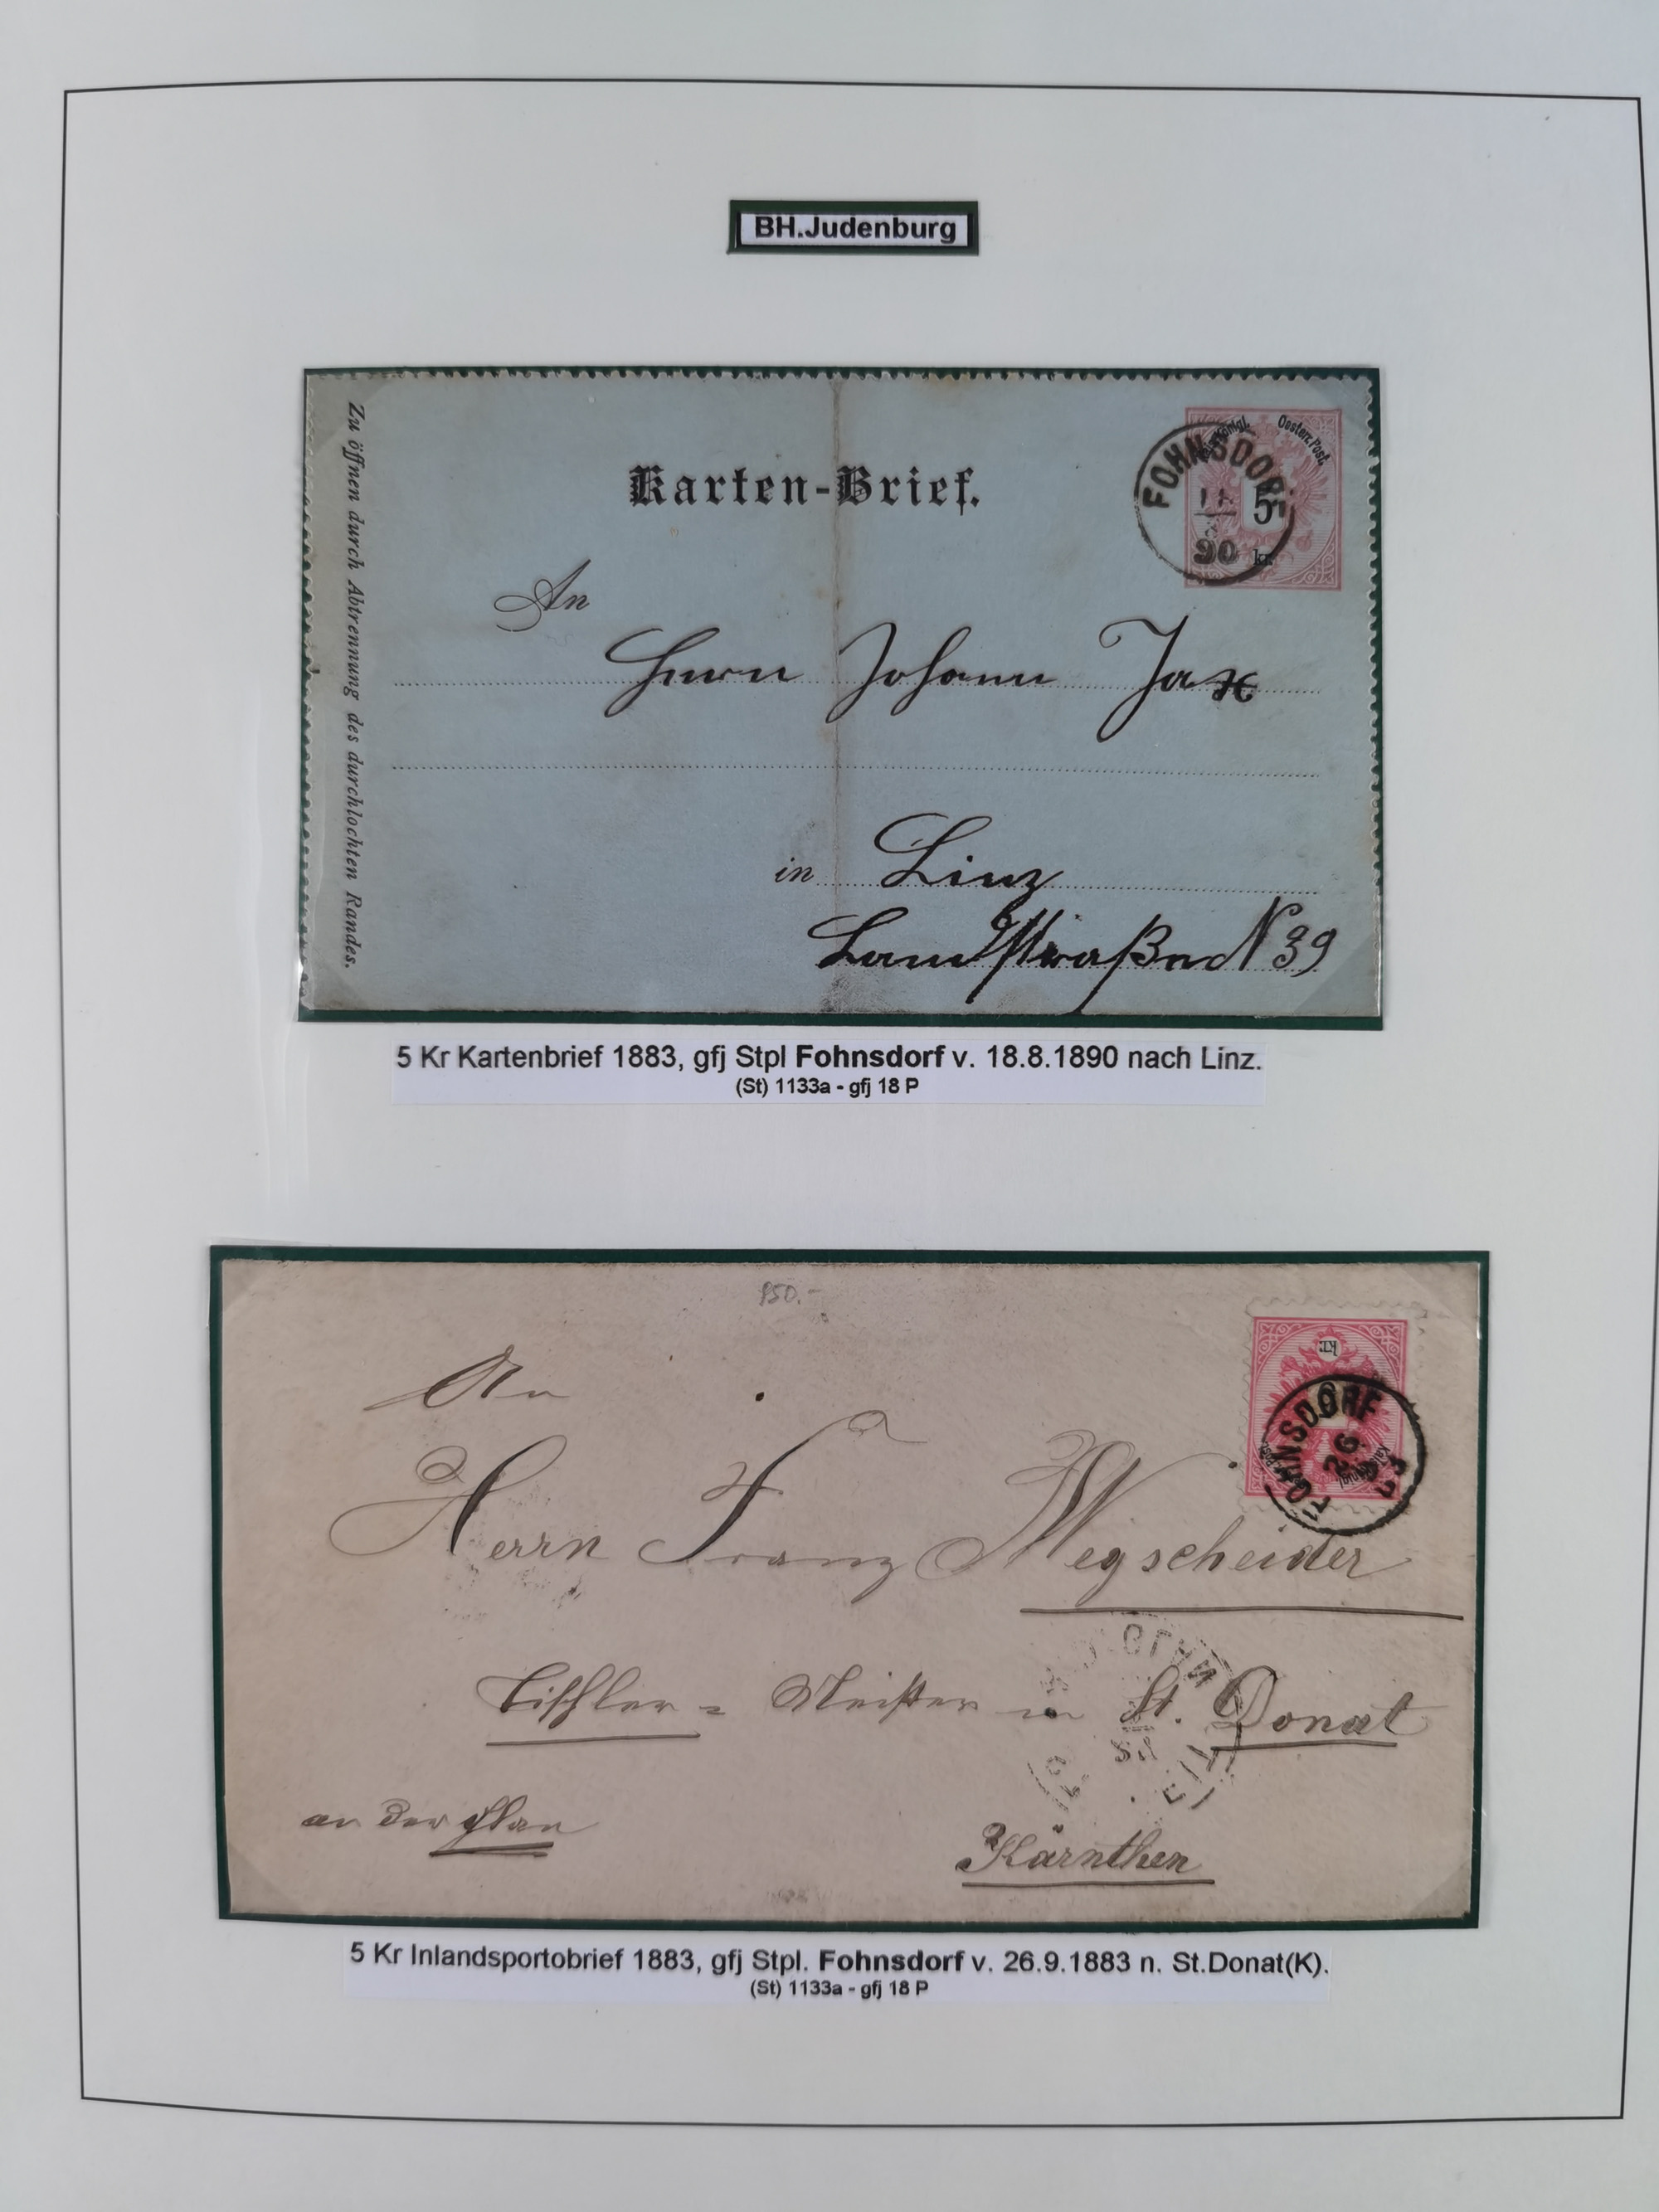 BH.Judenburg
Zu öffnen durch Abtrennung des durchlochten Randes.
Karten-Brief.
Oesterr. Post.
5
kr.
FOHNSDORF
90
An
Herrn Johann Jax
in Linz
Landstraße N 39
5 Kr Kartenbrief 1883, gfj Stpl Fohnsdorf v. 18.8.1890 nach Linz.
(St) 1133a - gfj 18 P
kr.
FOHNSDORF
26
9
83
An
Herrn Franz Wegscheider
Tischler = Meister in St. Donat
an der Glan
Kärnthen
5 Kr Inlandsportobrief 1883, gfj Stpl. Fohnsdorf v. 26.9.1883 n. St.Donat(K).
(St) 1133a - gfj 18 P